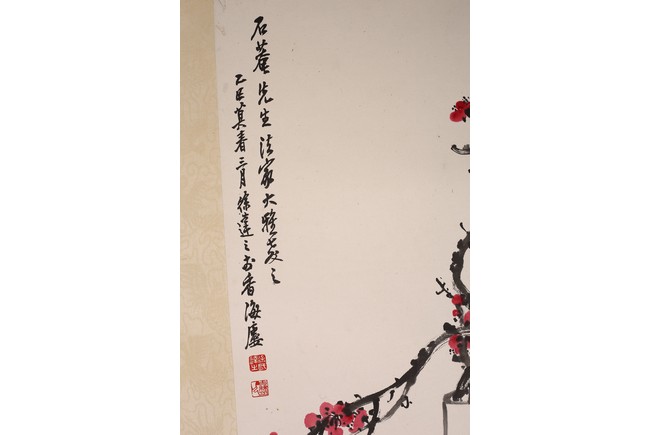 石菴先生法家大雅教之
乙巳莫春三月徐達之於香海廔